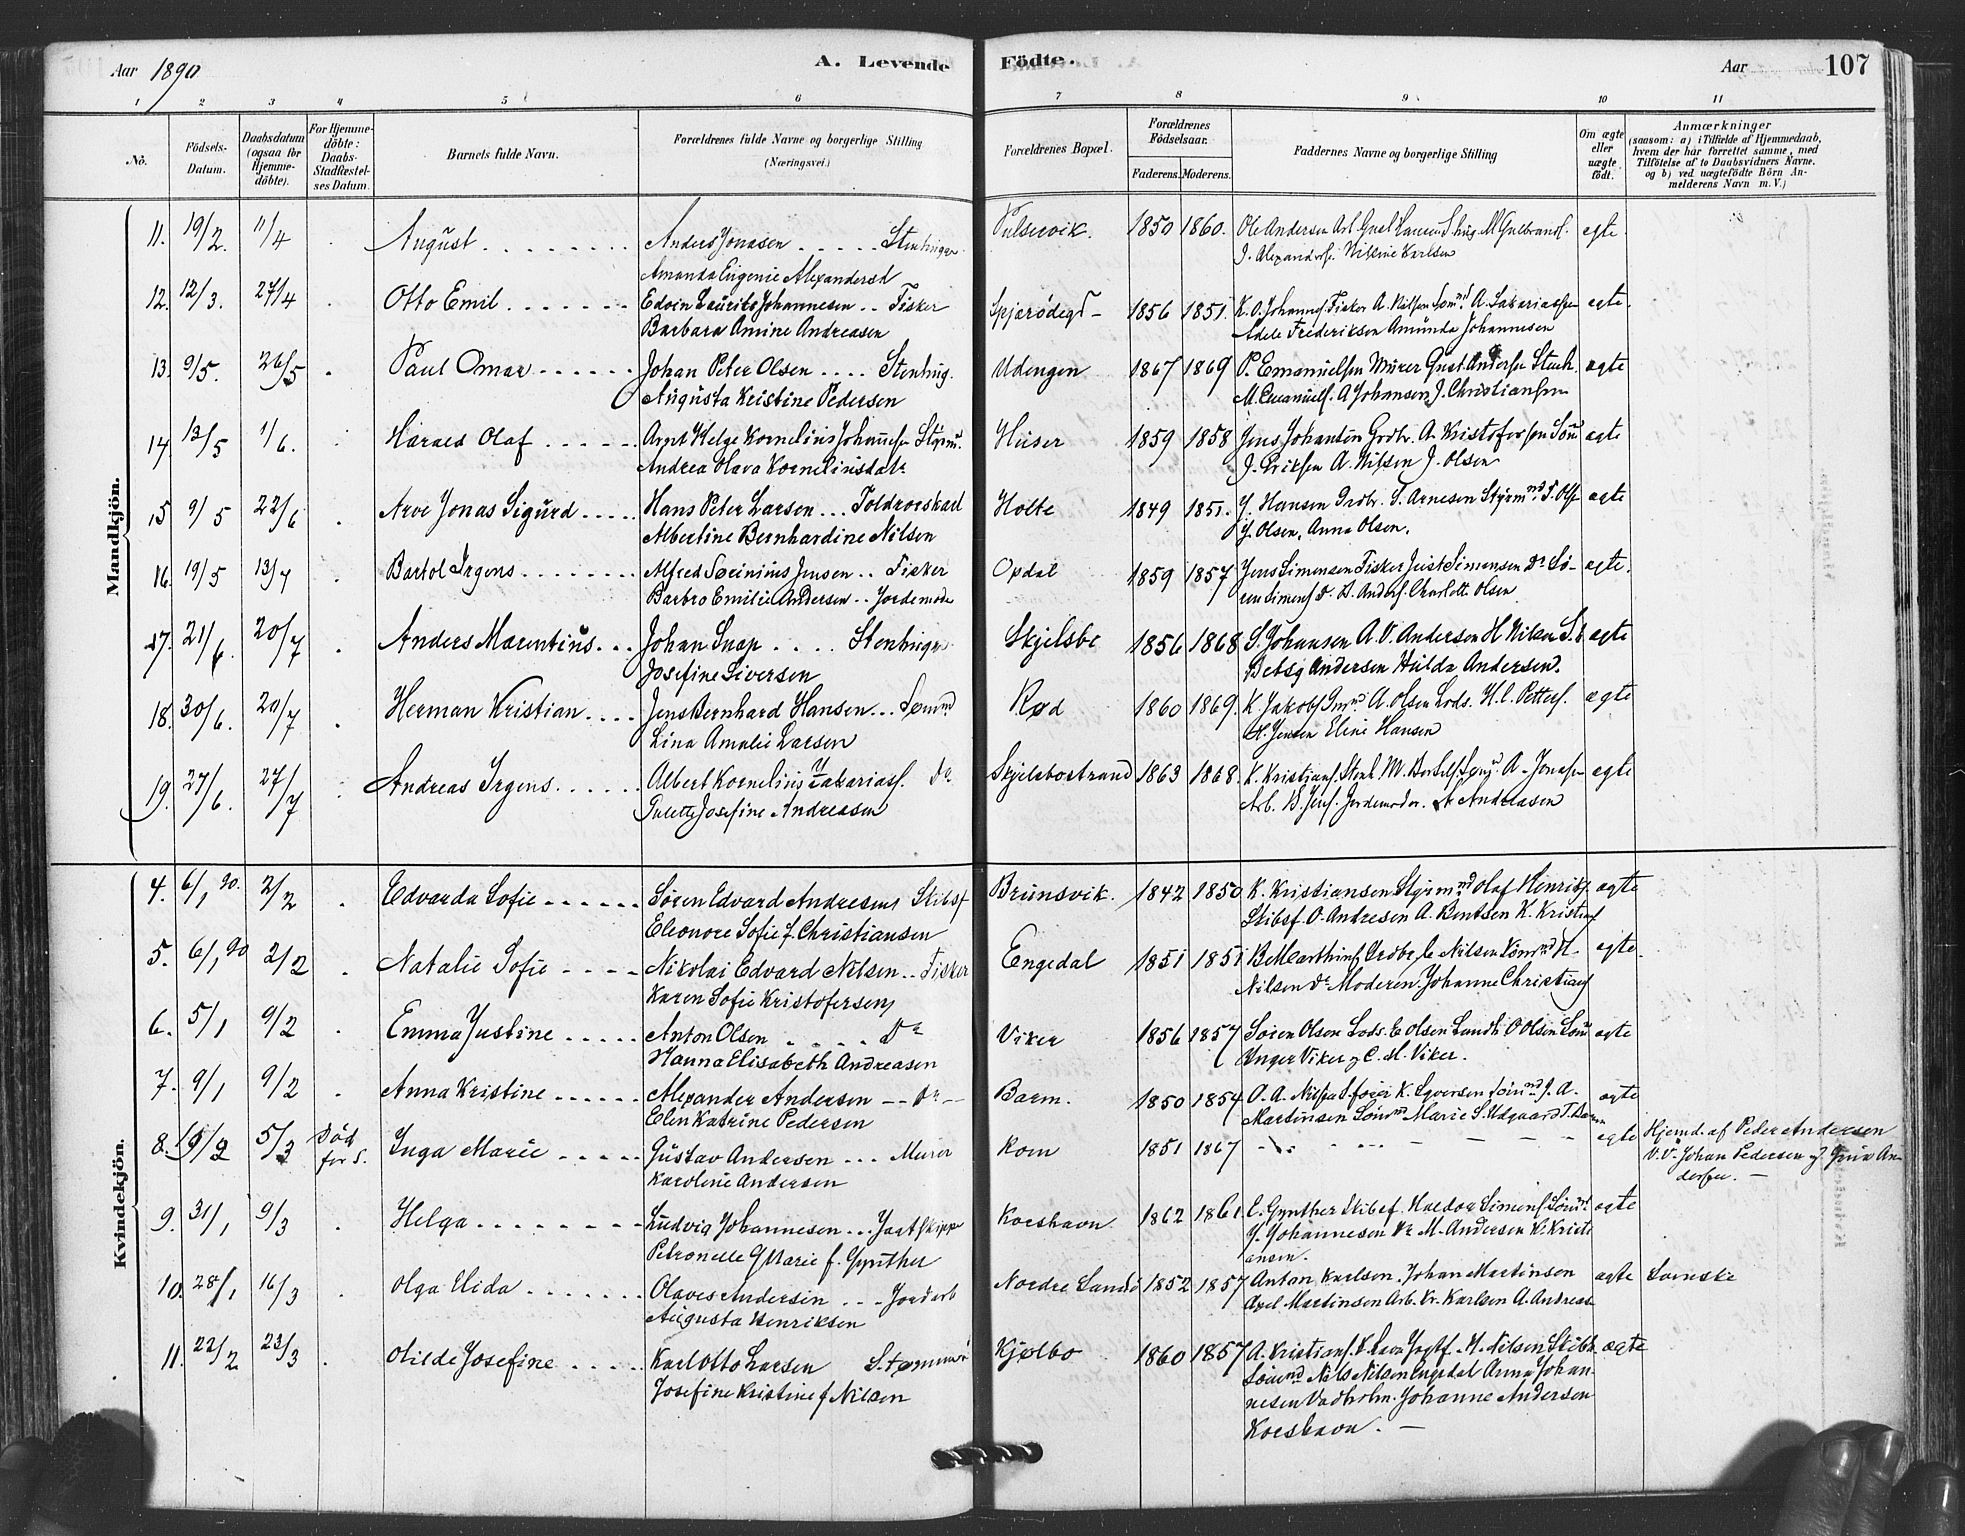 Aar 1890
A. Levende Födte.
Aar
107
1 2 3 4 5 6 7 8 9 10 11
No.
Födsels-Datum.
Daabsdatum (ogsaa for Hjemme-döbte).
For Hjemme-döbte: Daabs-Stadfæstel-ses Datum.
Barnets fulde Navn.
Forældrenes fulde Navne og borgerlige Stilling (Næringsvei.)
Forældrenes Bopæl.
Forældrenes Födselsaar.
Faderens. Moderens.
Faddernes Navne og borgerlige Stilling
Om ægte eller uægte födt.
Anmærkninger
(saasom: a) i Tilfælde af Hjemmedaab,
hvem der har forrettet samme, med
Tilföielse af to Daabsvidners Navne.
og b) ved uægtefödte Börn An-
melderens Navn m. V.)
Mandkjön.
11. 19/2. 11/4 August Anders Jonasen Stenhugger 1850 1860. Ole Andersen ægte
Amanda Eugenie Alexandersd
12. 12/3. 27/4 Otto Emil Edvin Laurits Johannesen Fisker Spjærødegd 1856 1851. K. O. Johannes Fisker A. Nilsen ægte.
Barbara Amine Andreasen Adele Frederiksen Amunda Johannesen
13. 9/5. 26/5 Paul Omar Johan Peter Olsen Stenhug. Udengen 1867 1869 P. Emanuelsen Murer Gust Andersen Stenh. ægte
Augusta Kristine Pedersen M. Emanuels. A Johansen J. Christiansen
14. 13/5 1/6. Harald Olaf Arnt Helge Kornelius Johannesen Styrm. Huser 1859 1858 Jens Johansen Grdbr. A. Kristofersen ægte
Andrea Olava Korneliusdatr J. Eriksen A. Nilsen J. Olsen
15 9/5 22/6 Arve Jonas Sigurd Hans Peter Larsen Toldroerskarl Holte 1849 1851. J. Hansen Grdbr. S. Arnesen Styrmnd ægte
Albertine Bernhardine Nilsen J. Olsen, Anna Olsen.
16. 19/5 13/7 Bartol Irgens Alfred Sørinius Jensen Fisker Opdal 1859 1857 Jens Simensen Fisker Just Simensen Do Sø- ægte.
Barbro Emilie Andersen Jordemoder ren Simens Do A. Anders. Charlotte Olsen
17. 21/6. 20/7 Anders Marentius Johan Snap Stenhugger Skjelsbo 1856 1868 S. Johansen A. V. Andersen H Nilsen ægte
Josefine Siversen Betsy Andersen Hulda Andersen.
18. 30/6. 20/7 Herman Kristian Jens Bernhard Hansen Sømnd Rød 1860 1869. K Jakobs A. Olsen Lods. H. C. Petters. ægte
Lina Amalie Larsen A. Jensen Eline Hansen
19. 27/6. 27/7 Andreas Irgens Albert Kornelius Zakariass. Do Skjelsbostrand 1863 1868. K. Kristians. ægte
Josefine Andreasen Arb. B. Jens. Jordemoder. A Andreasen
Kvindekjön.
4. 6/1 90. 2/2 Edvarda Sofie Søren Edvard Andresen Skibsf Brunsvik. 1842 1850 K. Kristiansen Styrmnd Olaf Henriks. ægte
Eleonore Sofie f. Christiansen Skibsf. O. Andresen A. Bentsen K. Kristians
5. 6/1 90 2/2 Natalie Sofie Nikolai Edvard Nilsen Fisker Engedal 1851 1851 B Marthins C Nilsen Sømnd H. ægte.
Karen Sofie Kristofersen Nilsen Do Moderen. Johanne Christians
6. 5/1 9/2 Emma Justine Anton Olsen Do Viker 1856 1857 Søren Olsen Lods. C Olsen O Olsen ægte
Hanna Elisabeth Andreasen Unger Viker og C. M. Viker.
7. 9/1 9/2 Anna Kristine Alexander Andersen Do Barm. 1850 1854 O. A. Nilsen K. Syversen J. A. ægte
Elen Katrine Pedersen Martinsen Sømnd Marie S. Udgaard
8. 9/2 5/3 Død før S. Inga Marie Gustav Andersen Murer Rom 1851 1867 ægte Hjemd. af Peder Andersen
Karoline Andersen V.V. Johan Pedersen og An-
dersen.
9. 31/1 9/3 Helga Ludvig Johannesen Jagtskipper Korshavn 1862 1861 C. Gynther Skibsf. Haldor Simens. ægte
Petronelle Marie f. Gynther J. Johannesen Do M. Andersen K. Kristi
ansen.
10. 28/1 16/3 Olga Elida Olaves Andersen Jordarb Nordre Sandø 1852 1857 Anton Karlsen. Johan Martinsen ægte Svenske
Augusta Henriksen Axel Martinsen Arb. Kr. Karlsen A. Andreas
11. 22/2 23/3 Olilde Josefine Karl Otto Larsen Kjølbo 1860 1857 A. Kristians. M. Nilsen ægte
Josefine Kristine f Nilsen Nils Nilsen Engedal Anna Johan-
nesen Vadholm. Johanne Andersen
Korshavn.